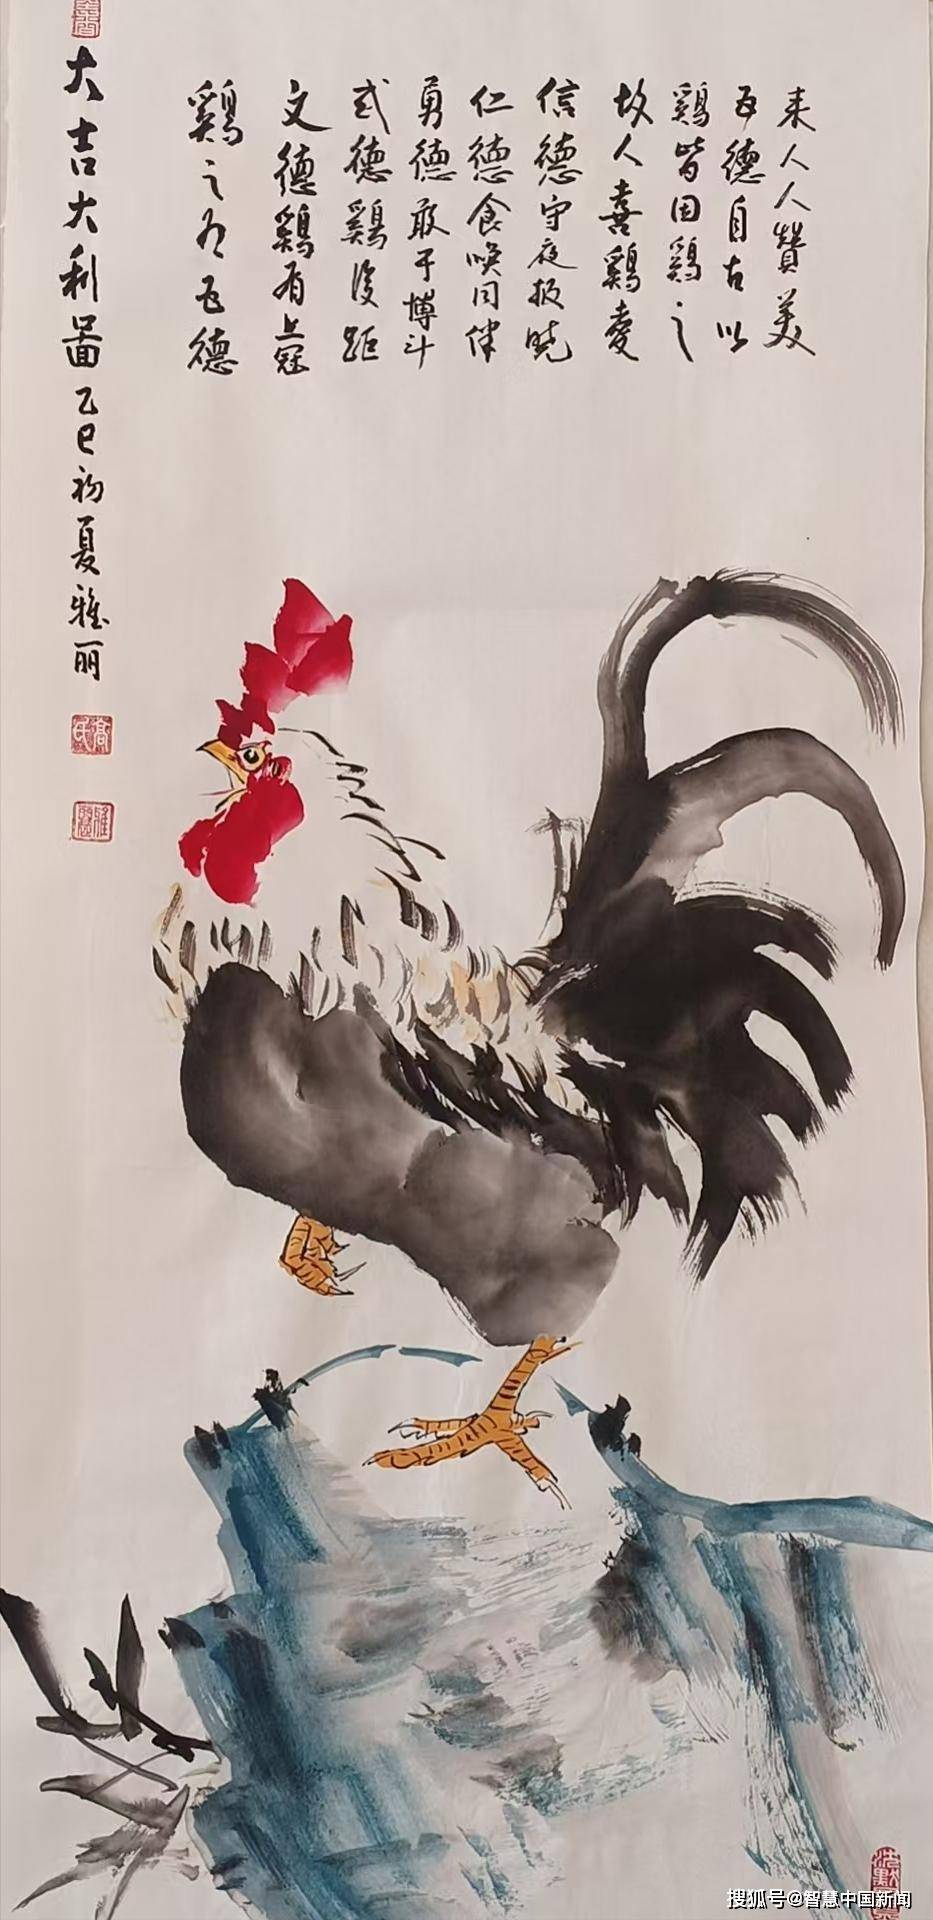 大吉大利图乙巳初夏雅丽
高氏
雅麗
鷄之五德
文德鷄有上冠
武德鷄後距
勇德敢于博斗
仁德食唤同伴
信德守夜报晓
故人喜鷄爱
鷄皆因鷄之
五德自古以
来人人贊美
搜狐号@智慧中国新闻